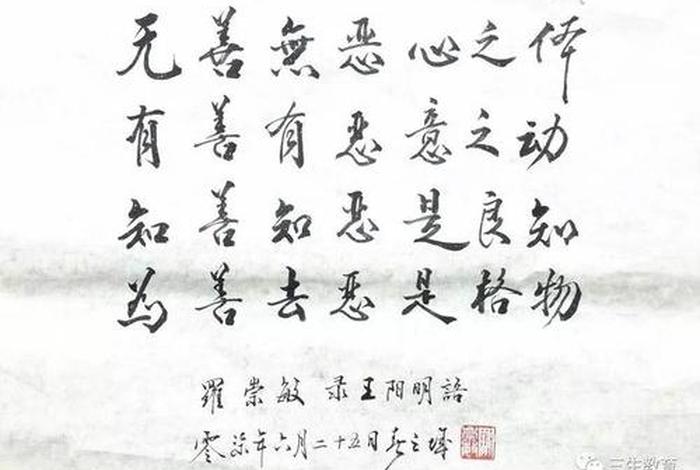 无善無恶心之体
有善有恶意之动
知善知恶是良知
为善去恶是格物
羅崇敏录王阳明語
六月二十五日
三生教育